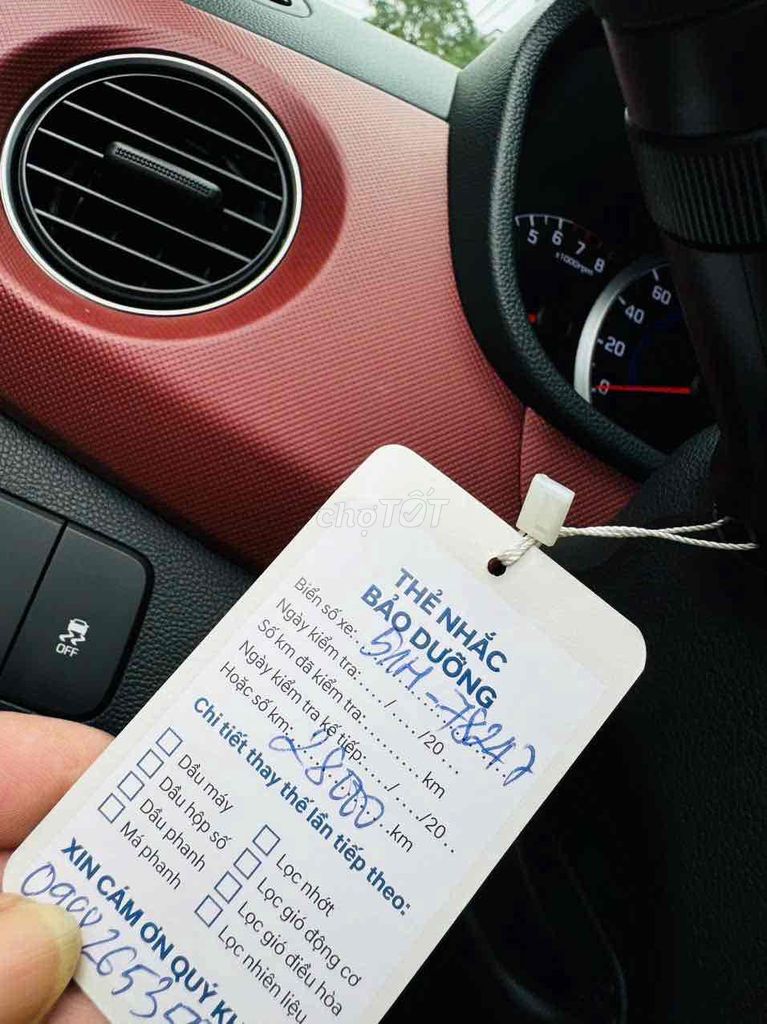 5 6 7 8
x1000rpm
60
40
20
0
chợTỐT
OFF
THẺ NHẮC
BẢO DƯỠNG
Biển số xe: 51H-78247
Ngày kiểm tra:..../..../20...
Số km đã kiểm tra:.......... km
Ngày kiểm tra kế tiếp..../..../20...
Hoặc số km: 28000 km
Chi tiết thay thế lần tiếp theo:
Dầu máy
Dầu hộp số
Dầu phanh
Má phanh
Lọc nhớt
Lọc gió động cơ
Lọc gió điều hòa
Lọc nhiên liệu
XIN CẢM ƠN QUÝ